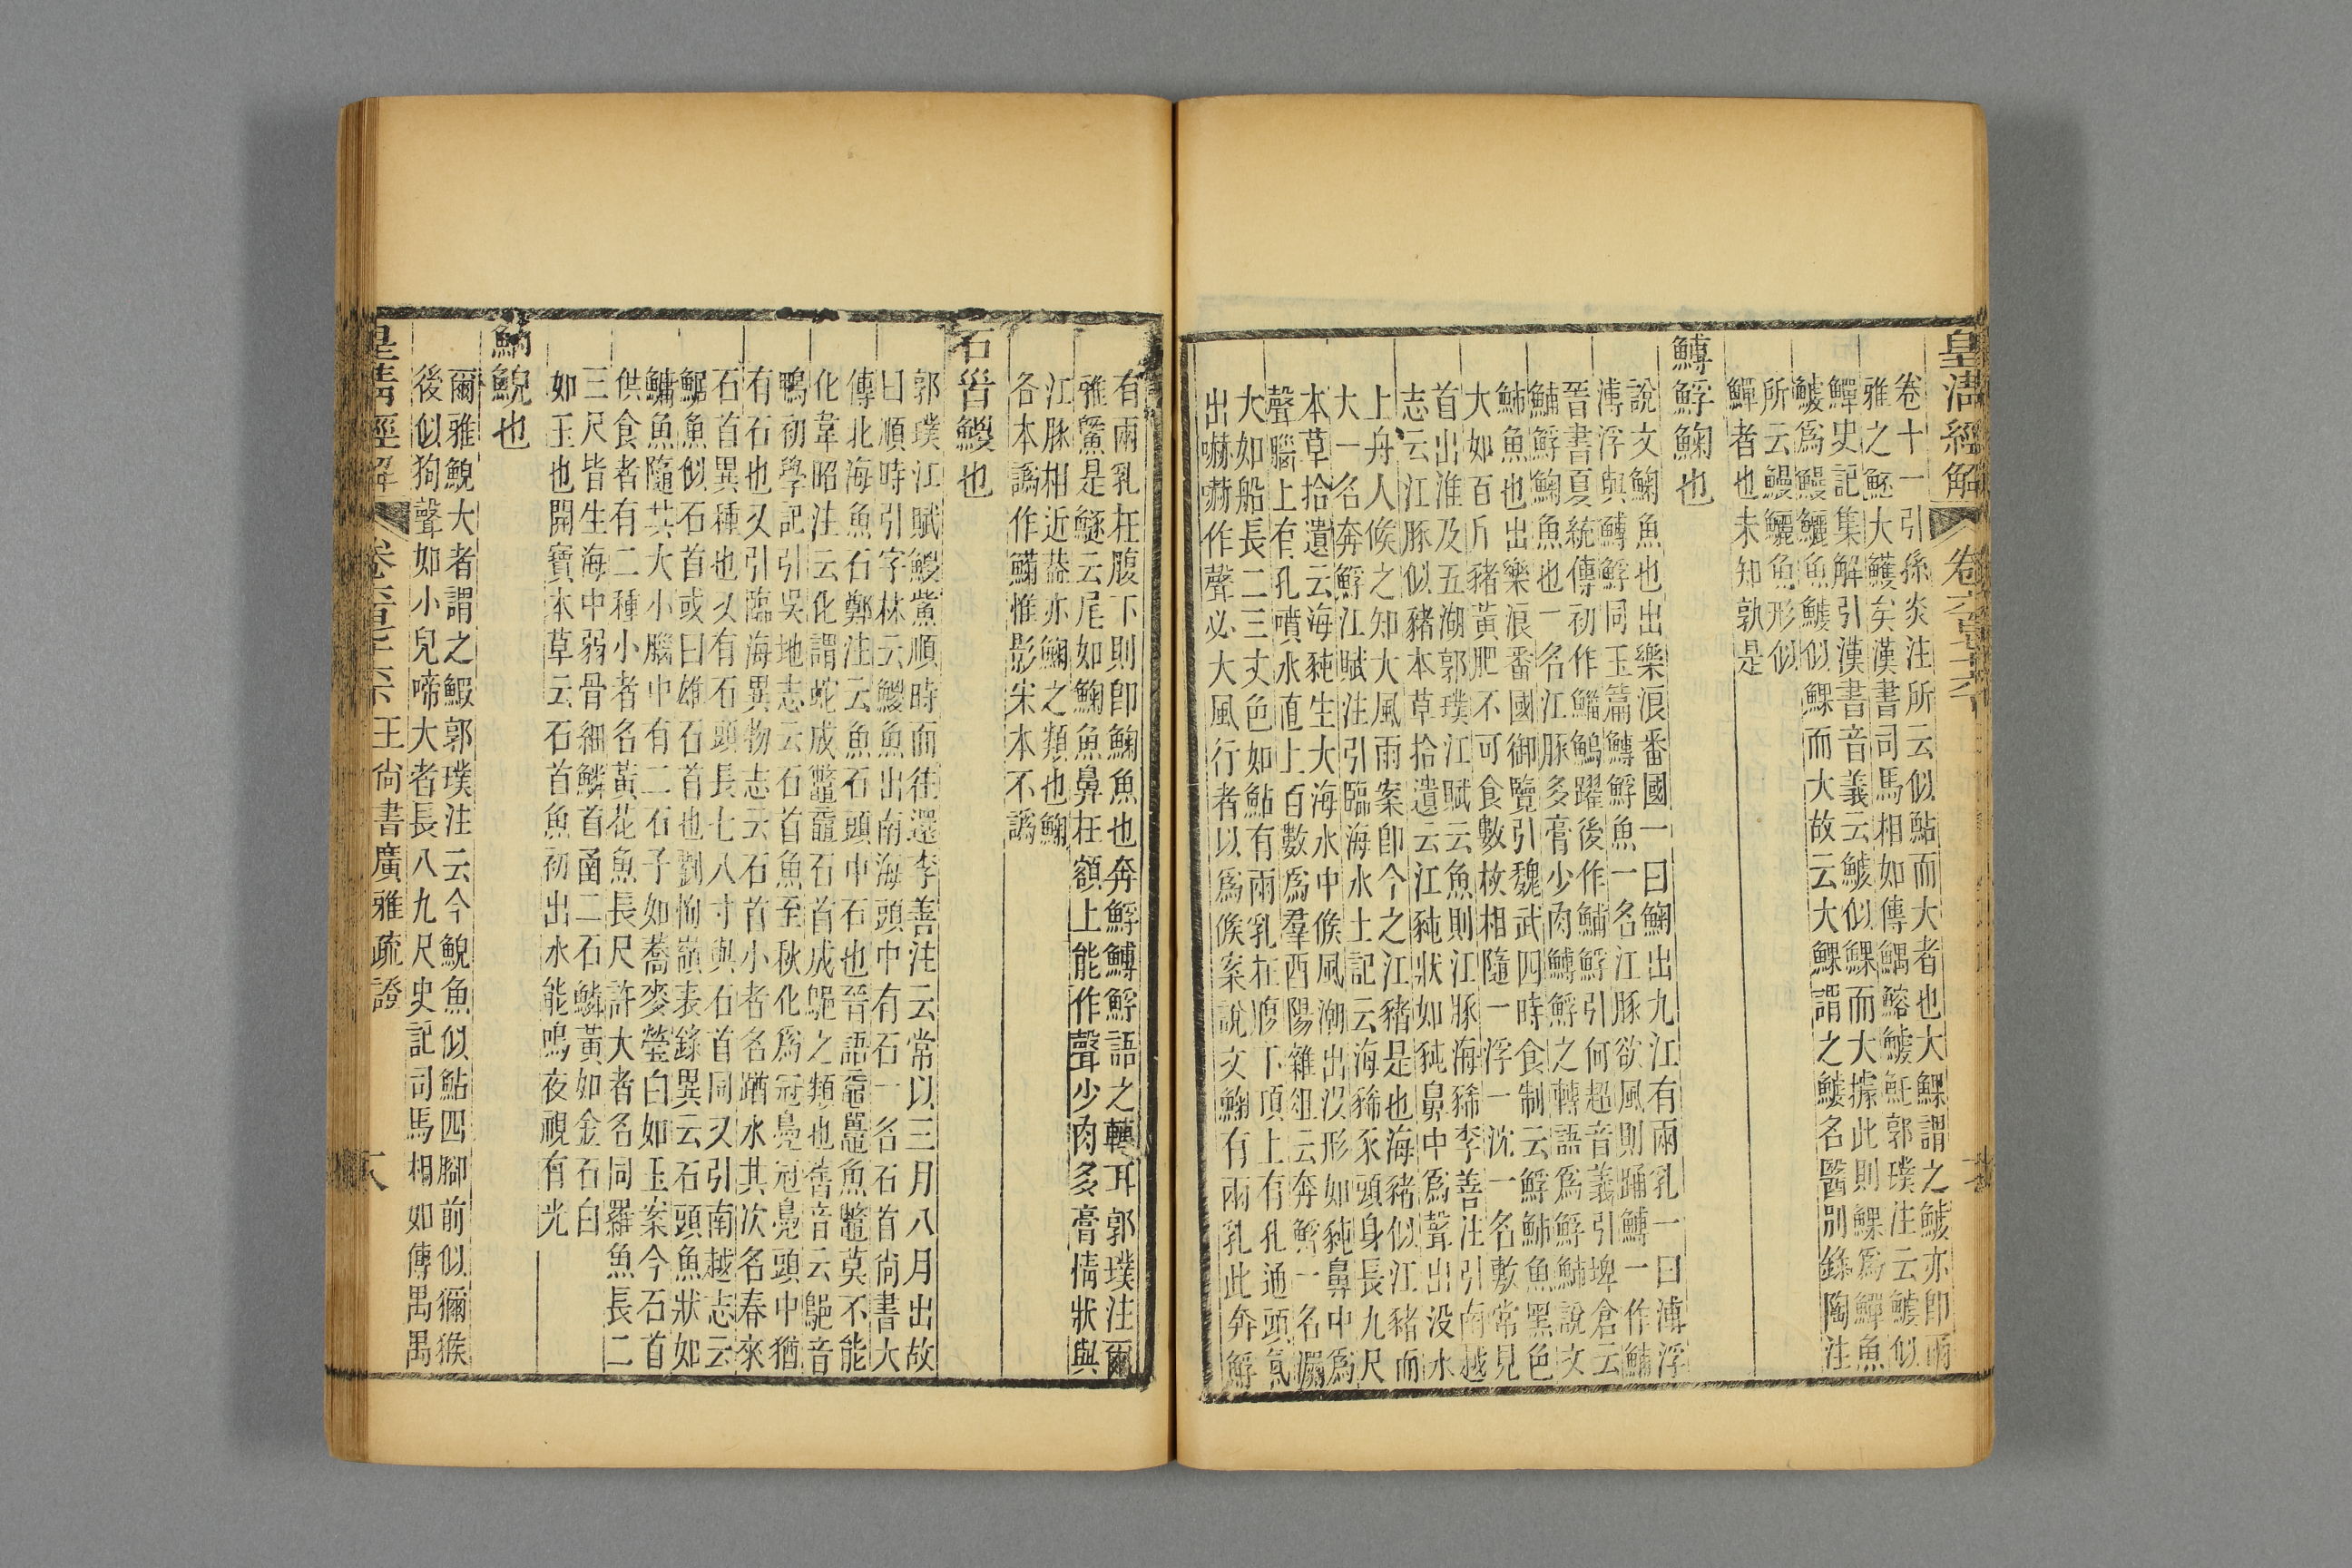 皇清經解 卷六百七十六
卷十一引孫炎注所云似鮎而大者也大鯶謂之鱯亦即爾
雅之魾大鱯矣漢書司馬相如傳鰅鰫鰬魠郭璞注云鰬似
鱓史記集解引漢書音義云鰬似鯶而大據此則鯶為鱓魚
鰬為鰻鱺魚鰬似鯶而大故云大鯶謂之鰬名醫別錄陶注
所云鰻鱺魚形似
鱓者也未知孰是
鱄鯙鯯也
說文鯯魚也出樂浪番國一曰鯯出九江有兩乳一曰溥浮
溥浮與鱄鯙同玉篇鱄鯙魚一名江豚欲風則踊鱄一作鯆
晉書夏統傳初作鯔鷠躍後作鯆䱐引何超音義引埤倉云
鯆䱐鯯魚也一名江豚多膏少肉鱄䱐之轉語為䱐䰽說文
䰽魚也出樂浪番國御覽引魏武四時食制云䱐䰽魚黑色
大如百斤豬黃肥不可食數枚相隨一浮一沈一名敷常見
首出淮及五湖郭璞江賦云魚則江豚海豨李善注引南越
志云江豚似豬本草拾遺云江豘狀如豘鼻中為聲出沒水
上舟人候之知大風雨案即今之江豬是也海豬似江豬而
大一名奔䱐江賦注引臨海水土記云海豨豕頭身長九尺
本草拾遺云海豘生大海水中候風潮出沒形如豘鼻中為
聲腦上有孔噴水直上百數為羣酉陽雜俎云奔䱐一名瀱
大如船長二三丈色如鮎有兩乳在腹下頂上有孔通頭氣
出嚇嚇作聲必大風行者以為候案說文鯯有兩乳此奔䱐
有兩乳在腹下則即鯯魚也奔䱐鱄䱐語之轉耳郭璞注爾
雅鱀是鱁云尾如鯯魚鼻在額上能作聲少肉多膏情狀與
江豚相近葢亦鯯之類也鯯
各本譌作䲛惟影宋本不譌
石首鯼也
郭璞江賦鯼鮆順時而往還李善注云常以三月八月出故
曰順時引字林云鯼魚出南海頭中有石一名石首尚書大
傳北海魚石鄭注云魚石頭中石也晉語黿鼉魚鼈莫不能
化韋昭注云化謂蛇成鼈黿石首成䳱之類也舊音云䳱音
鴨初學記引吳地志云石首魚至秋化為冠鳧冠鳧頭中猶
有石也又引臨海異物志云石首小者名䠓水其次名春來
石首異種也又有石頭長七八寸與石首同又引南越志云
䱟魚似石首或曰雄石首也劉恂嶺表錄異云石頭魚狀如
鱅魚隨其大小腦中有二石子如蕎麥瑩白如玉案今石首
供食者有二種小者名黃花魚長尺許大者名同羅魚長二
三尺皆生海中弱骨細鱗首函二石鱗黃如金石白
如玉也開寶本草云石首魚初出水能鳴夜視有光
魶鯢也
爾雅鯢大者謂之鰕郭璞注云今鯢魚似鮎四腳前似獼猴
後似狗聲如小兒啼大者長八九尺史記司馬相如傳禺禺
皇清經解 卷六百七十六 王尚書廣雅疏證